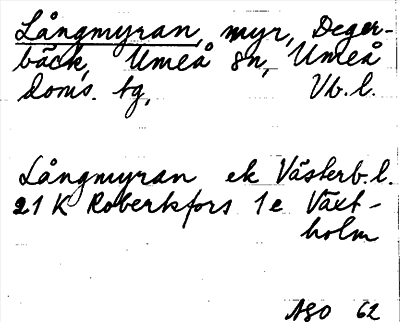 Långmyran, myr, Deger-
bäck, Umeå sn, Umeå
doms. tg, Vb.l.
Långmyran ek Västerb.l.
21 K Robertsfors 1 e Växt-
holm
ASO 62